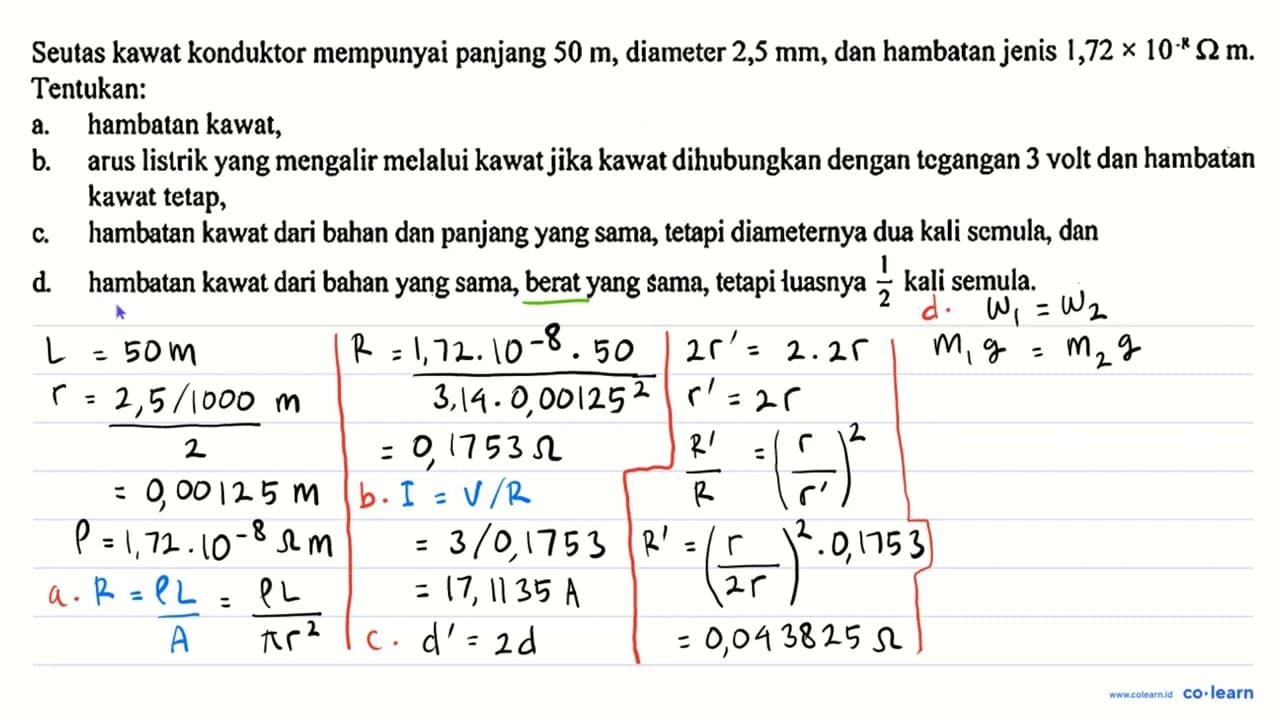 Seutas kawat konduktor mempunyai panjang 50 m, diameter 2,5 mm, dan hambatan jenis 1,72 × 10⁻⁸ Ω m.
Tentukan:
a. hambatan kawat,
b. arus listrik yang mengalir melalui kawat jika kawat dihubungkan dengan tegangan 3 volt dan hambatan
kawat tetap,
c. hambatan kawat dari bahan dan panjang yang sama, tetapi diameternya dua kali semula, dan
d. hambatan kawat dari bahan yang sama, berat yang sama, tetapi luasnya 1/2 kali semula.
L = 50 m
r = (2,5/1000 m)/2
= 0,00125 m
ρ = 1,72.10⁻⁸ Ωm
a. R = ρL/A = ρL/πr²
R = (1,72.10⁻⁸.50)/(3,14.0,00125²)
= 0,1753 Ω
b. I = V/R
= 3/0,1753
= 17,1135 A
c. d' = 2d
2r' = 2.2r
r' = 2r
R'/R = (r/r')²
R' = (r/2r)².0,1753
= 0,043825 Ω
d. W₁ = W₂
m₁g = m₂g
www.colearn.id co·learn